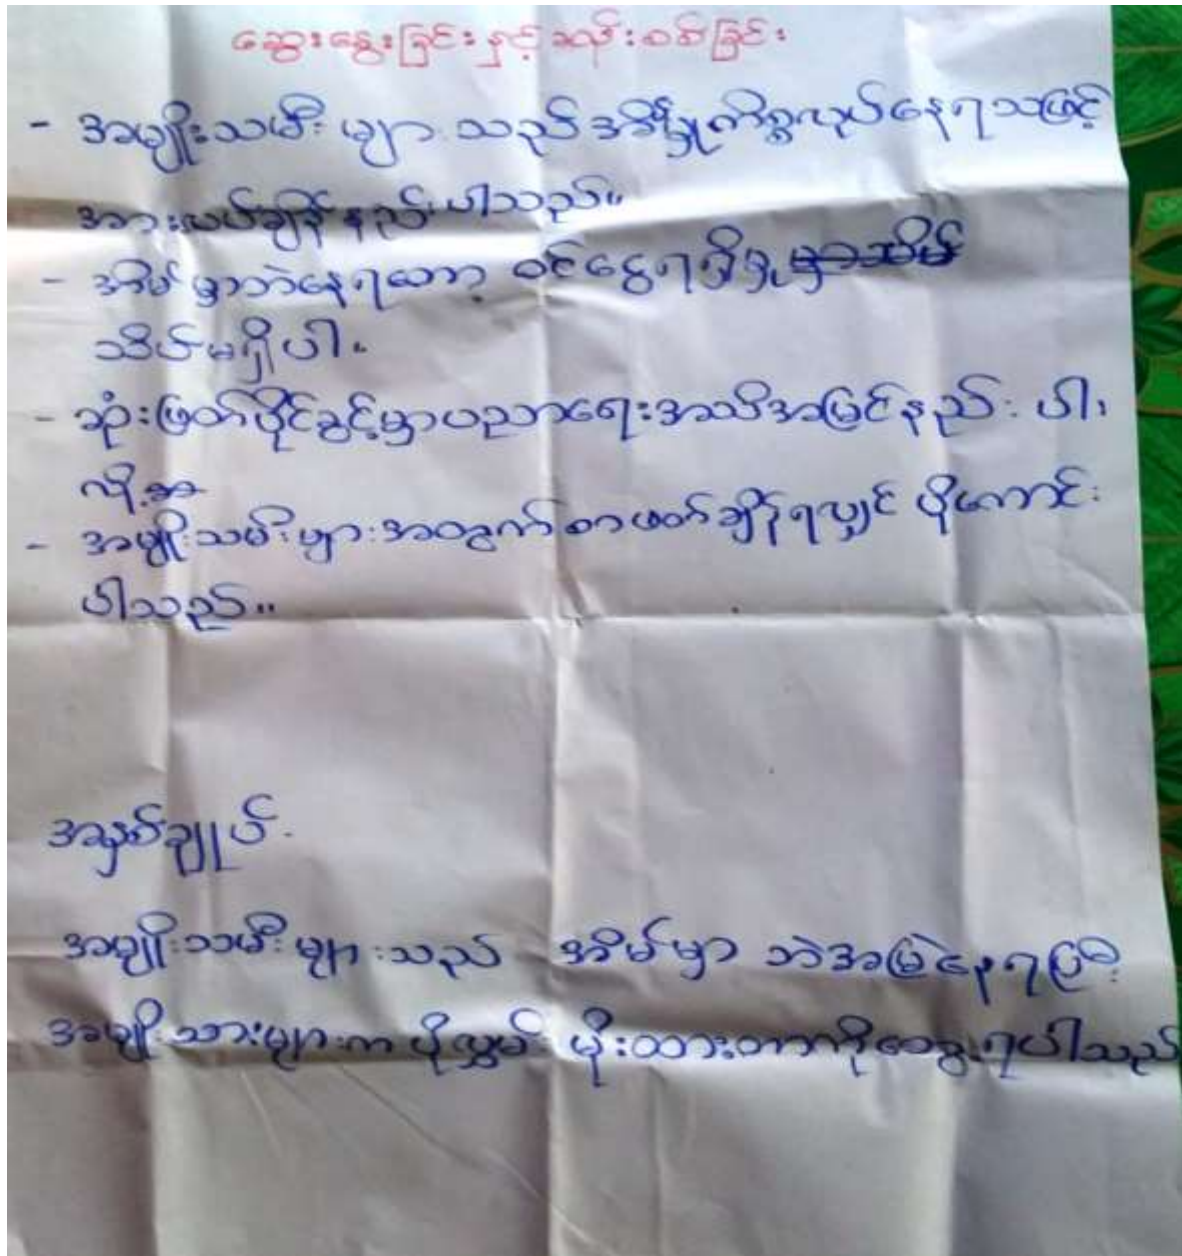 ဆွေးနွေးခြင်း နှင့် ဆန်းစစ်ခြင်း
- အမျိုးသမီး များ သည် အိမ်မှုကိစ္စလုပ်နေရသဖြင့်
အားလပ်ချိန်နည်းပါသည်။
- အိမ်မှာဘဲနေရတော့ ဝင်ငွေရရှိမှု
သိပ်မရှိပါ။
- ဆုံးဖြတ်ပိုင်ခွင့်မှာပညာရေးအသိအမြင်နည်း ပါ၊
လို့
- အမျိုးသမီးများအတွက်စာဖတ်ချိန်ရလျှင် ပိုကောင်း
ပါသည်။
အနှစ်ချုပ်
အမျိုးသမီး များသည် အိမ်မှာ ဘဲအမြဲနေရပြီး
အမျိုးသားများက ပိုလွှမ်း မိုးထားတာကိုတွေ့ရပါသည်